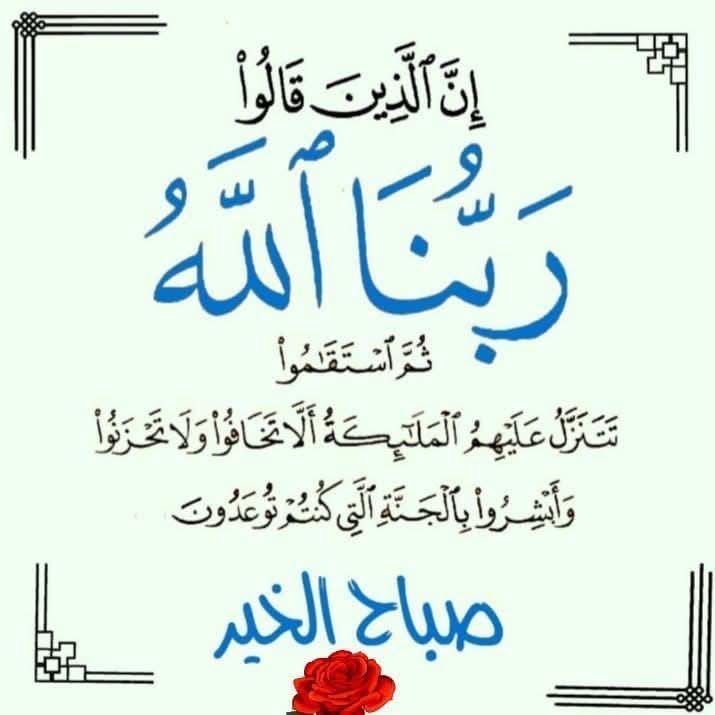 إِنَّ ٱلَّذِينَ قَالُوا۟
رَبُّنَا ٱللَّهُ
ثُمَّ ٱسْتَقَـٰمُوا۟
تَتَنَزَّلُ عَلَيْهِمُ ٱلْمَلَـٰٓئِكَةُ أَلَّا تَخَافُوا۟ وَلَا تَحْزَنُوا۟
وَأَبْشِرُوا۟ بِٱلْجَنَّةِ ٱلَّتِى كُنتُمْ تُوعَدُونَ
صباح الخير